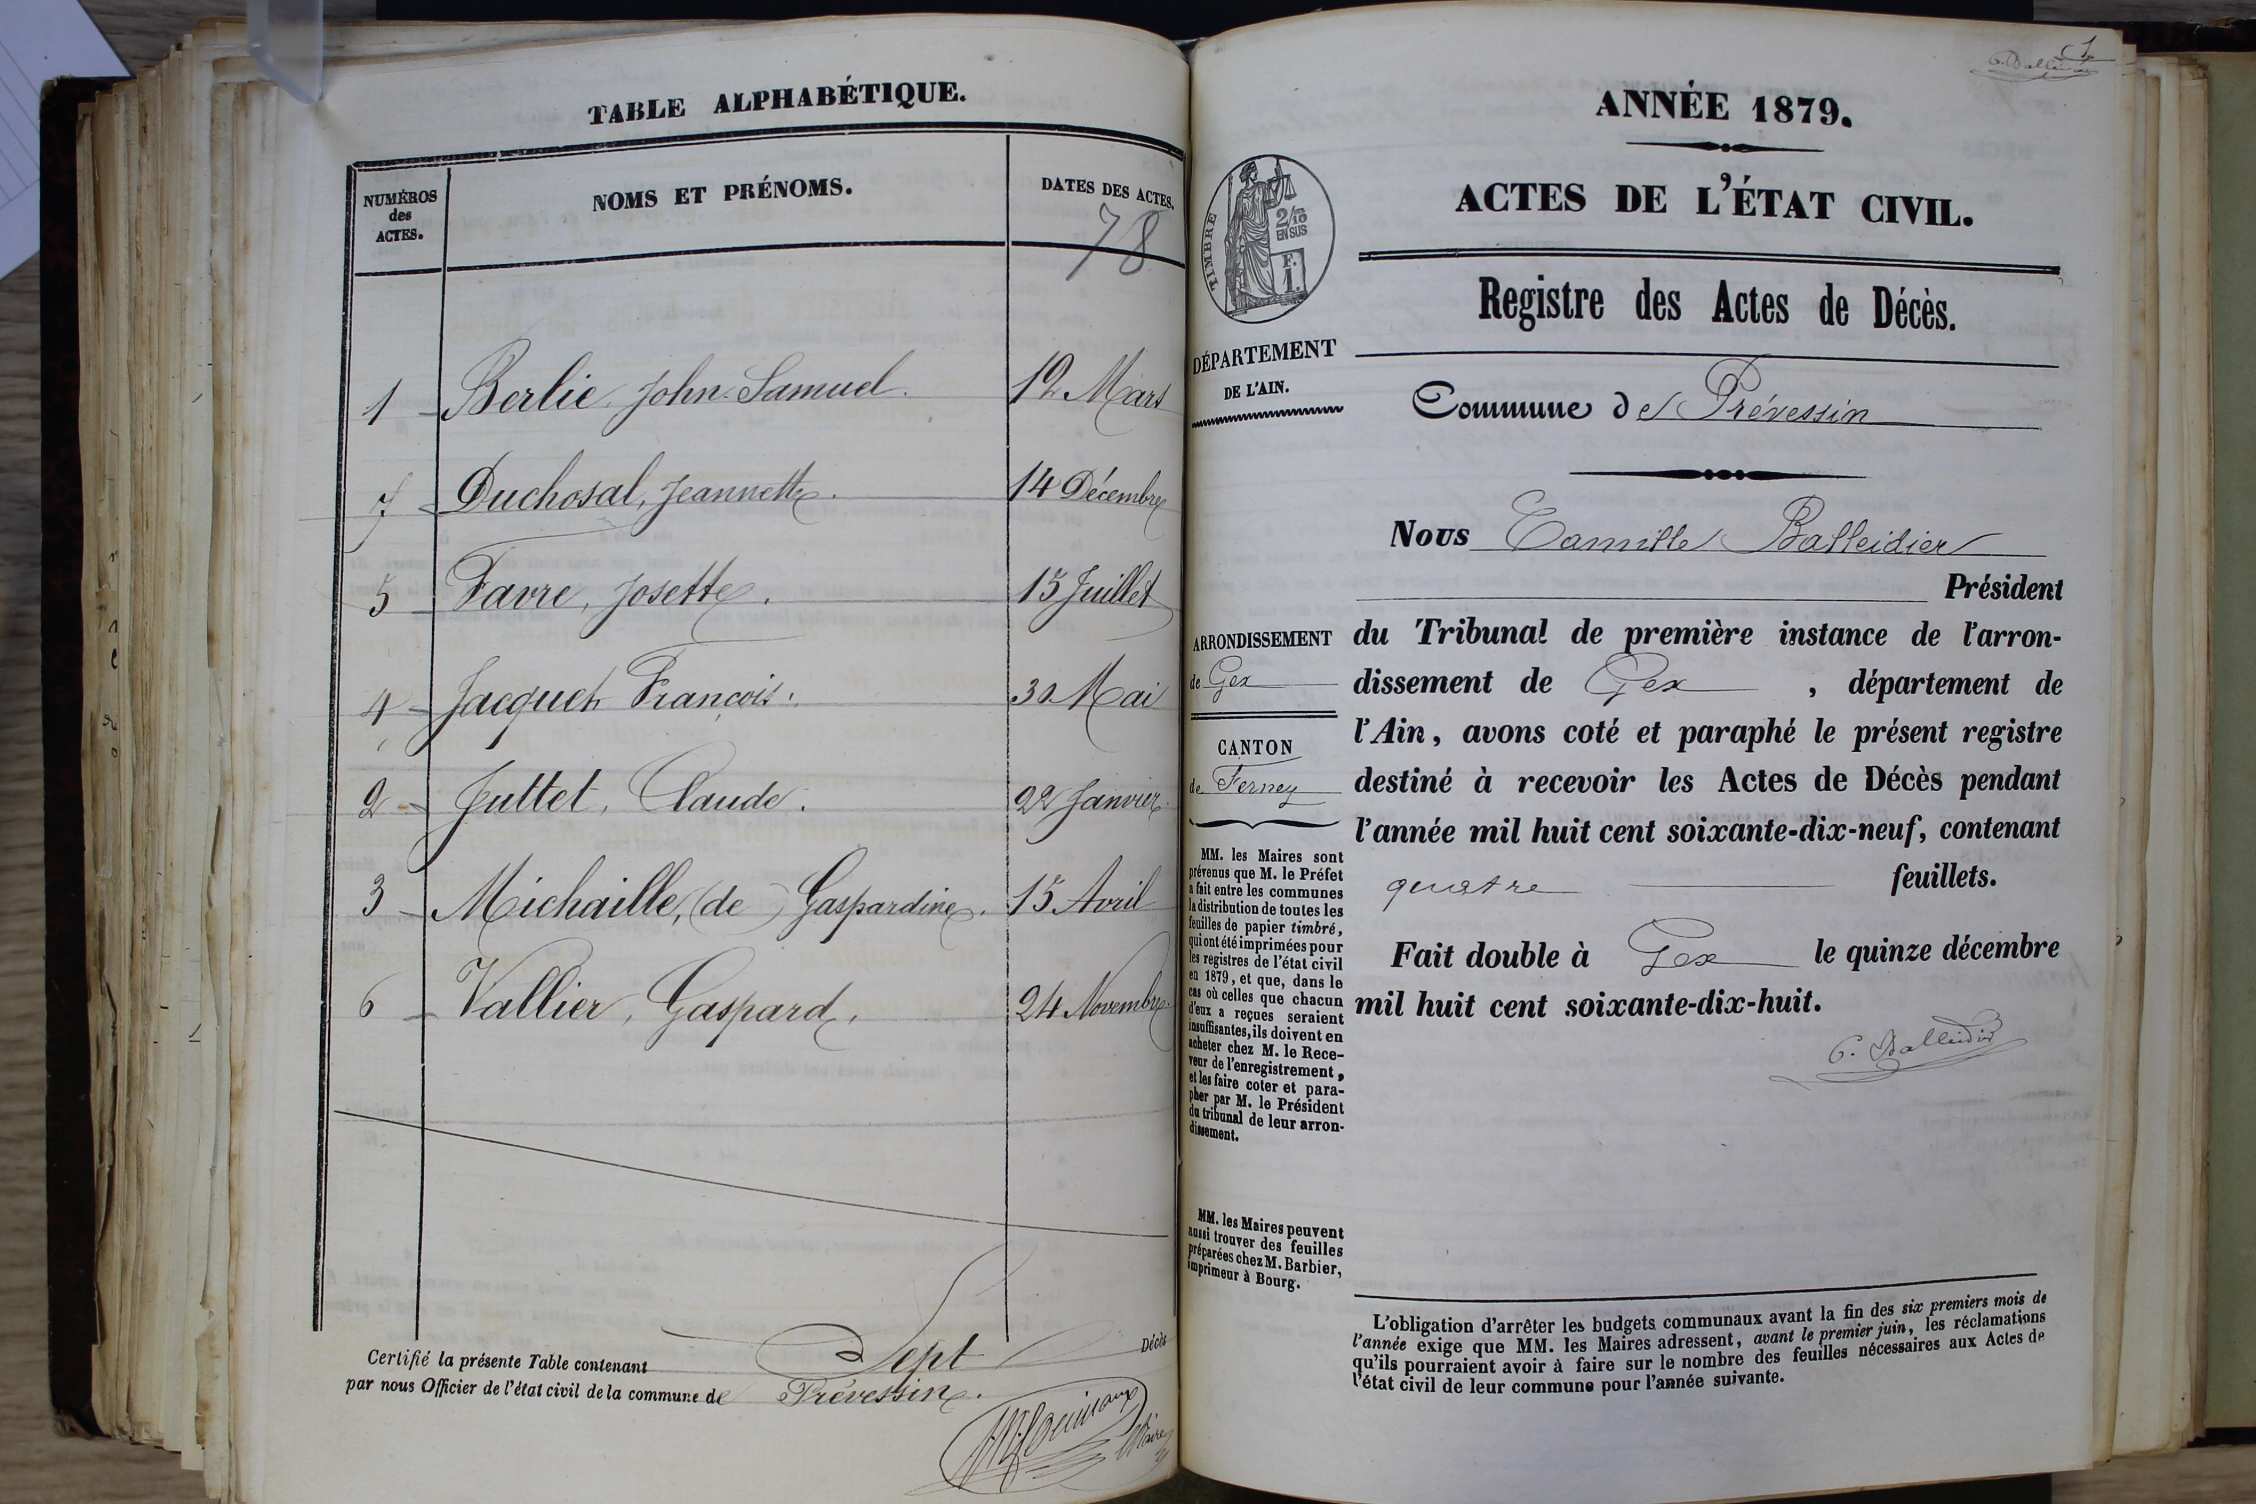 TABLE ALPHABÉTIQUE.
NUMÉROS
des
ACTES.
NOMS ET PRÉNOMS.
DATES DES ACTES.
78
1 Berlie, John-Samuel. 12 Mars
7 Duchosal, Jeannette. 14 Décembre
5 Favre, Josette. 15 Juillet
4 Jacquet François. 30 Mai
2 Juttet, Claude. 22 Janvier.
3 Michaille, (de) Gaspardine. 15 Avril
6 Vallier, Gaspard. 24 Novembre.
Certifié la présente Table contenant Sept Décès
par nous Officier de l'état civil de la commune de Prévessin.
Maire
1
C. Balleidier
ANNÉE 1879.
ACTES DE L'ÉTAT CIVIL.
TIMBRE
2/10
EN SUS
F.
1.
Registre des Actes de Décès.
DÉPARTEMENT
DE L'AIN.
Commune de Prévessin
Nous Camille Balleidier
Président
ARRONDISSEMENT
de Gex
CANTON
de Ferney
du Tribunal de première instance de l'arron-
dissement de Gex, département de
l'Ain, avons coté et paraphé le présent registre
destiné à recevoir les Actes de Décès pendant
l'année mil huit cent soixante-dix-neuf, contenant
quatre feuillets.
Fait double à Gex le quinze décembre
mil huit cent soixante-dix-huit.
C. Balleidier
MM. les Maires sont
prévenus que M. le Préfet
a fait entre les communes
la distribution de toutes les
feuilles de papier timbré,
qui ont été imprimées pour
les registres de l'état civil
en 1879, et que, dans le
cas où celles que chacun
d'eux a reçues seraient
insuffisantes, ils doivent en
acheter chez M. le Rece-
veur de l'enregistrement,
et les faire coter et para-
pher par M. le Président
du tribunal de leur arron-
dissement.
MM. les Maires peuvent
aussi trouver des feuilles
préparées chez M. Barbier,
imprimeur à Bourg.
L'obligation d'arrêter les budgets communaux avant la fin des six premiers mois de
l'année exige que MM. les Maires adressent, avant le premier juin, les réclamations
qu'ils pourraient avoir à faire sur le nombre des feuilles nécessaires aux Actes de
l'état civil de leur commune pour l'année suivante.